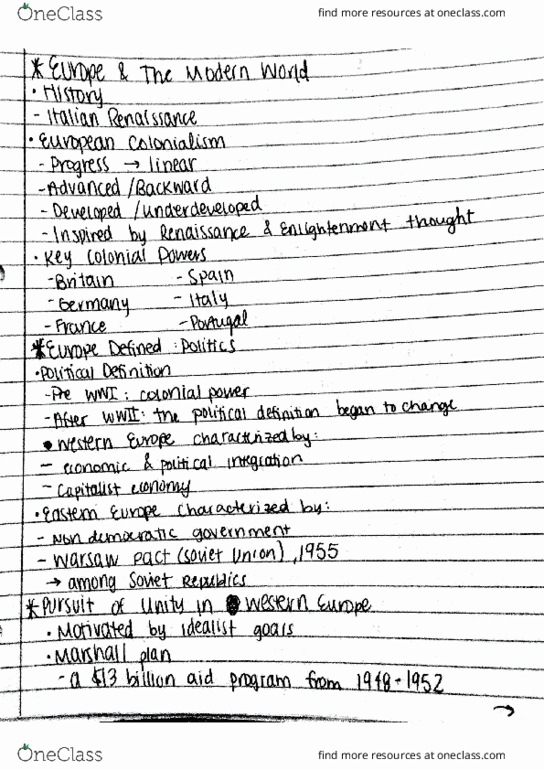 OneClass
find more resources at oneclass.com
* Europe & The Modern World
• History
- Italian Renaissance
• European Colonialism
- Progress → linear
- Advanced / Backward
- Developed / underdeveloped
- Inspired by Renaissance & Enlightenment thought
• Key Colonial Powers
- Britain - Spain
- Germany - Italy
- France - Portugal
* Europe Defined : Politics
• Political Definition
- Pre WWI : colonial power
- After WWII : the political definition began to change
• Western Europe characterized by:
- economic & political integration
- Capitalist economy
• Eastern Europe characterized by:
- Non democratic government
- Warsaw pact (Soviet Union), 1955
→ among Soviet Republics
* Pursuit of Unity in Western Europe
• Motivated by idealist goals
• Marshall plan
- a $13 billion aid program from 1948 - 1952
→
OneClass
find more resources at oneclass.com